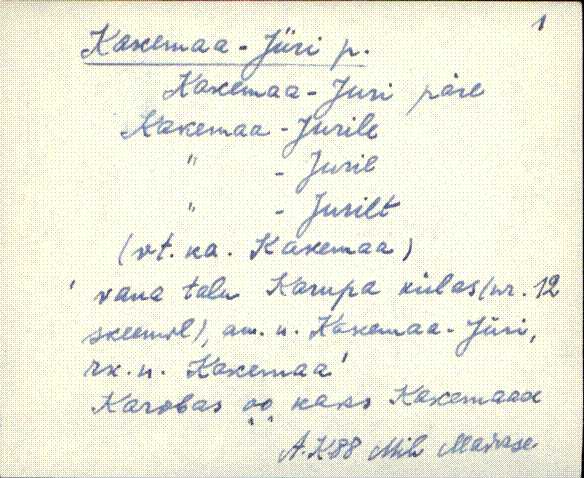 1
Kakemaa - Jüri p.
Kakemaa - Juri päre
Kakemaa - Jurile
" - Juril
" - Jurilt
(vt. ka. Kakemaa)
' vana talu Karupa külas (nr. 12
skeemil), am. n. Kakemaa - Jüri,
rk. n. Kakemaa'
Karobas oo kaks Kakemaad
A. K88 Mih